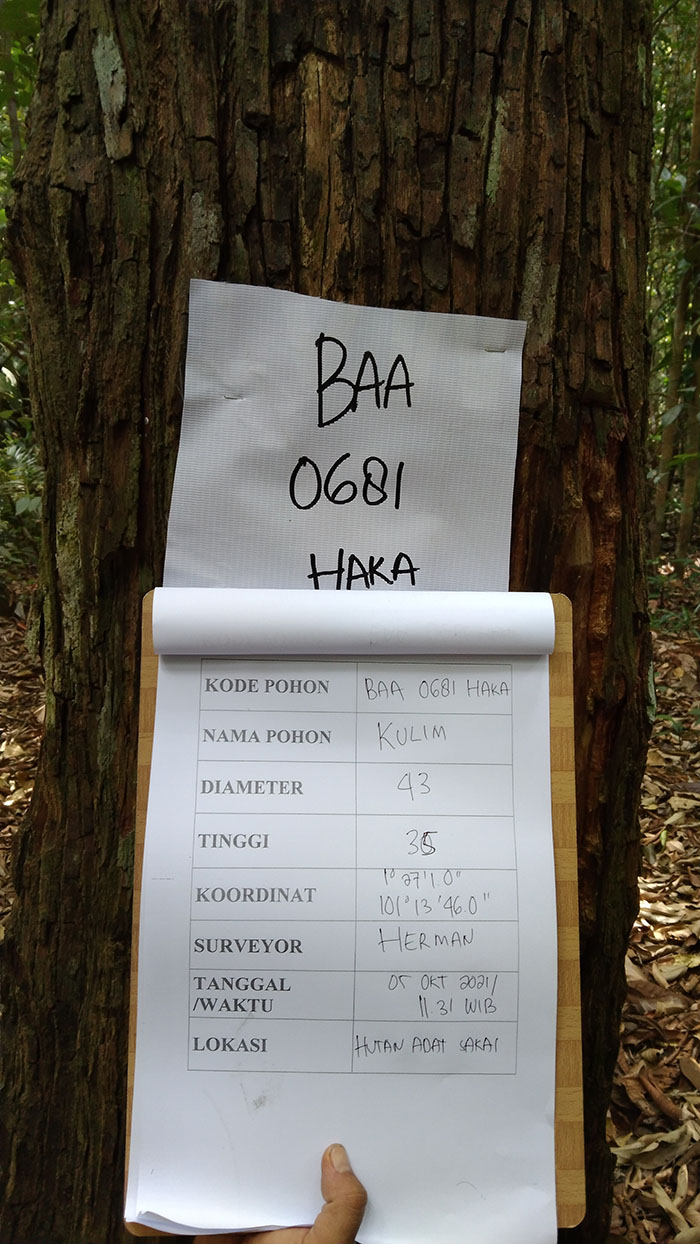 BAA
0681
HAKA
KODE POHON BAA 0681 HAKA
NAMA POHON KULIM
DIAMETER 43
TINGGI 35
KOORDINAT 1° 27'1.0"
101° 13'46.0"
SURVEYOR HERMAN
TANGGAL 05 OKT 2021/
/WAKTU 11.31 WIB
LOKASI HUTAN ADAT SAKAI